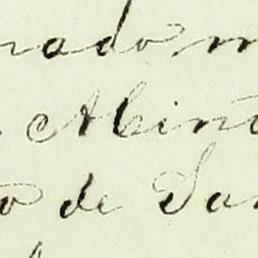 rado m
Abint
to de San